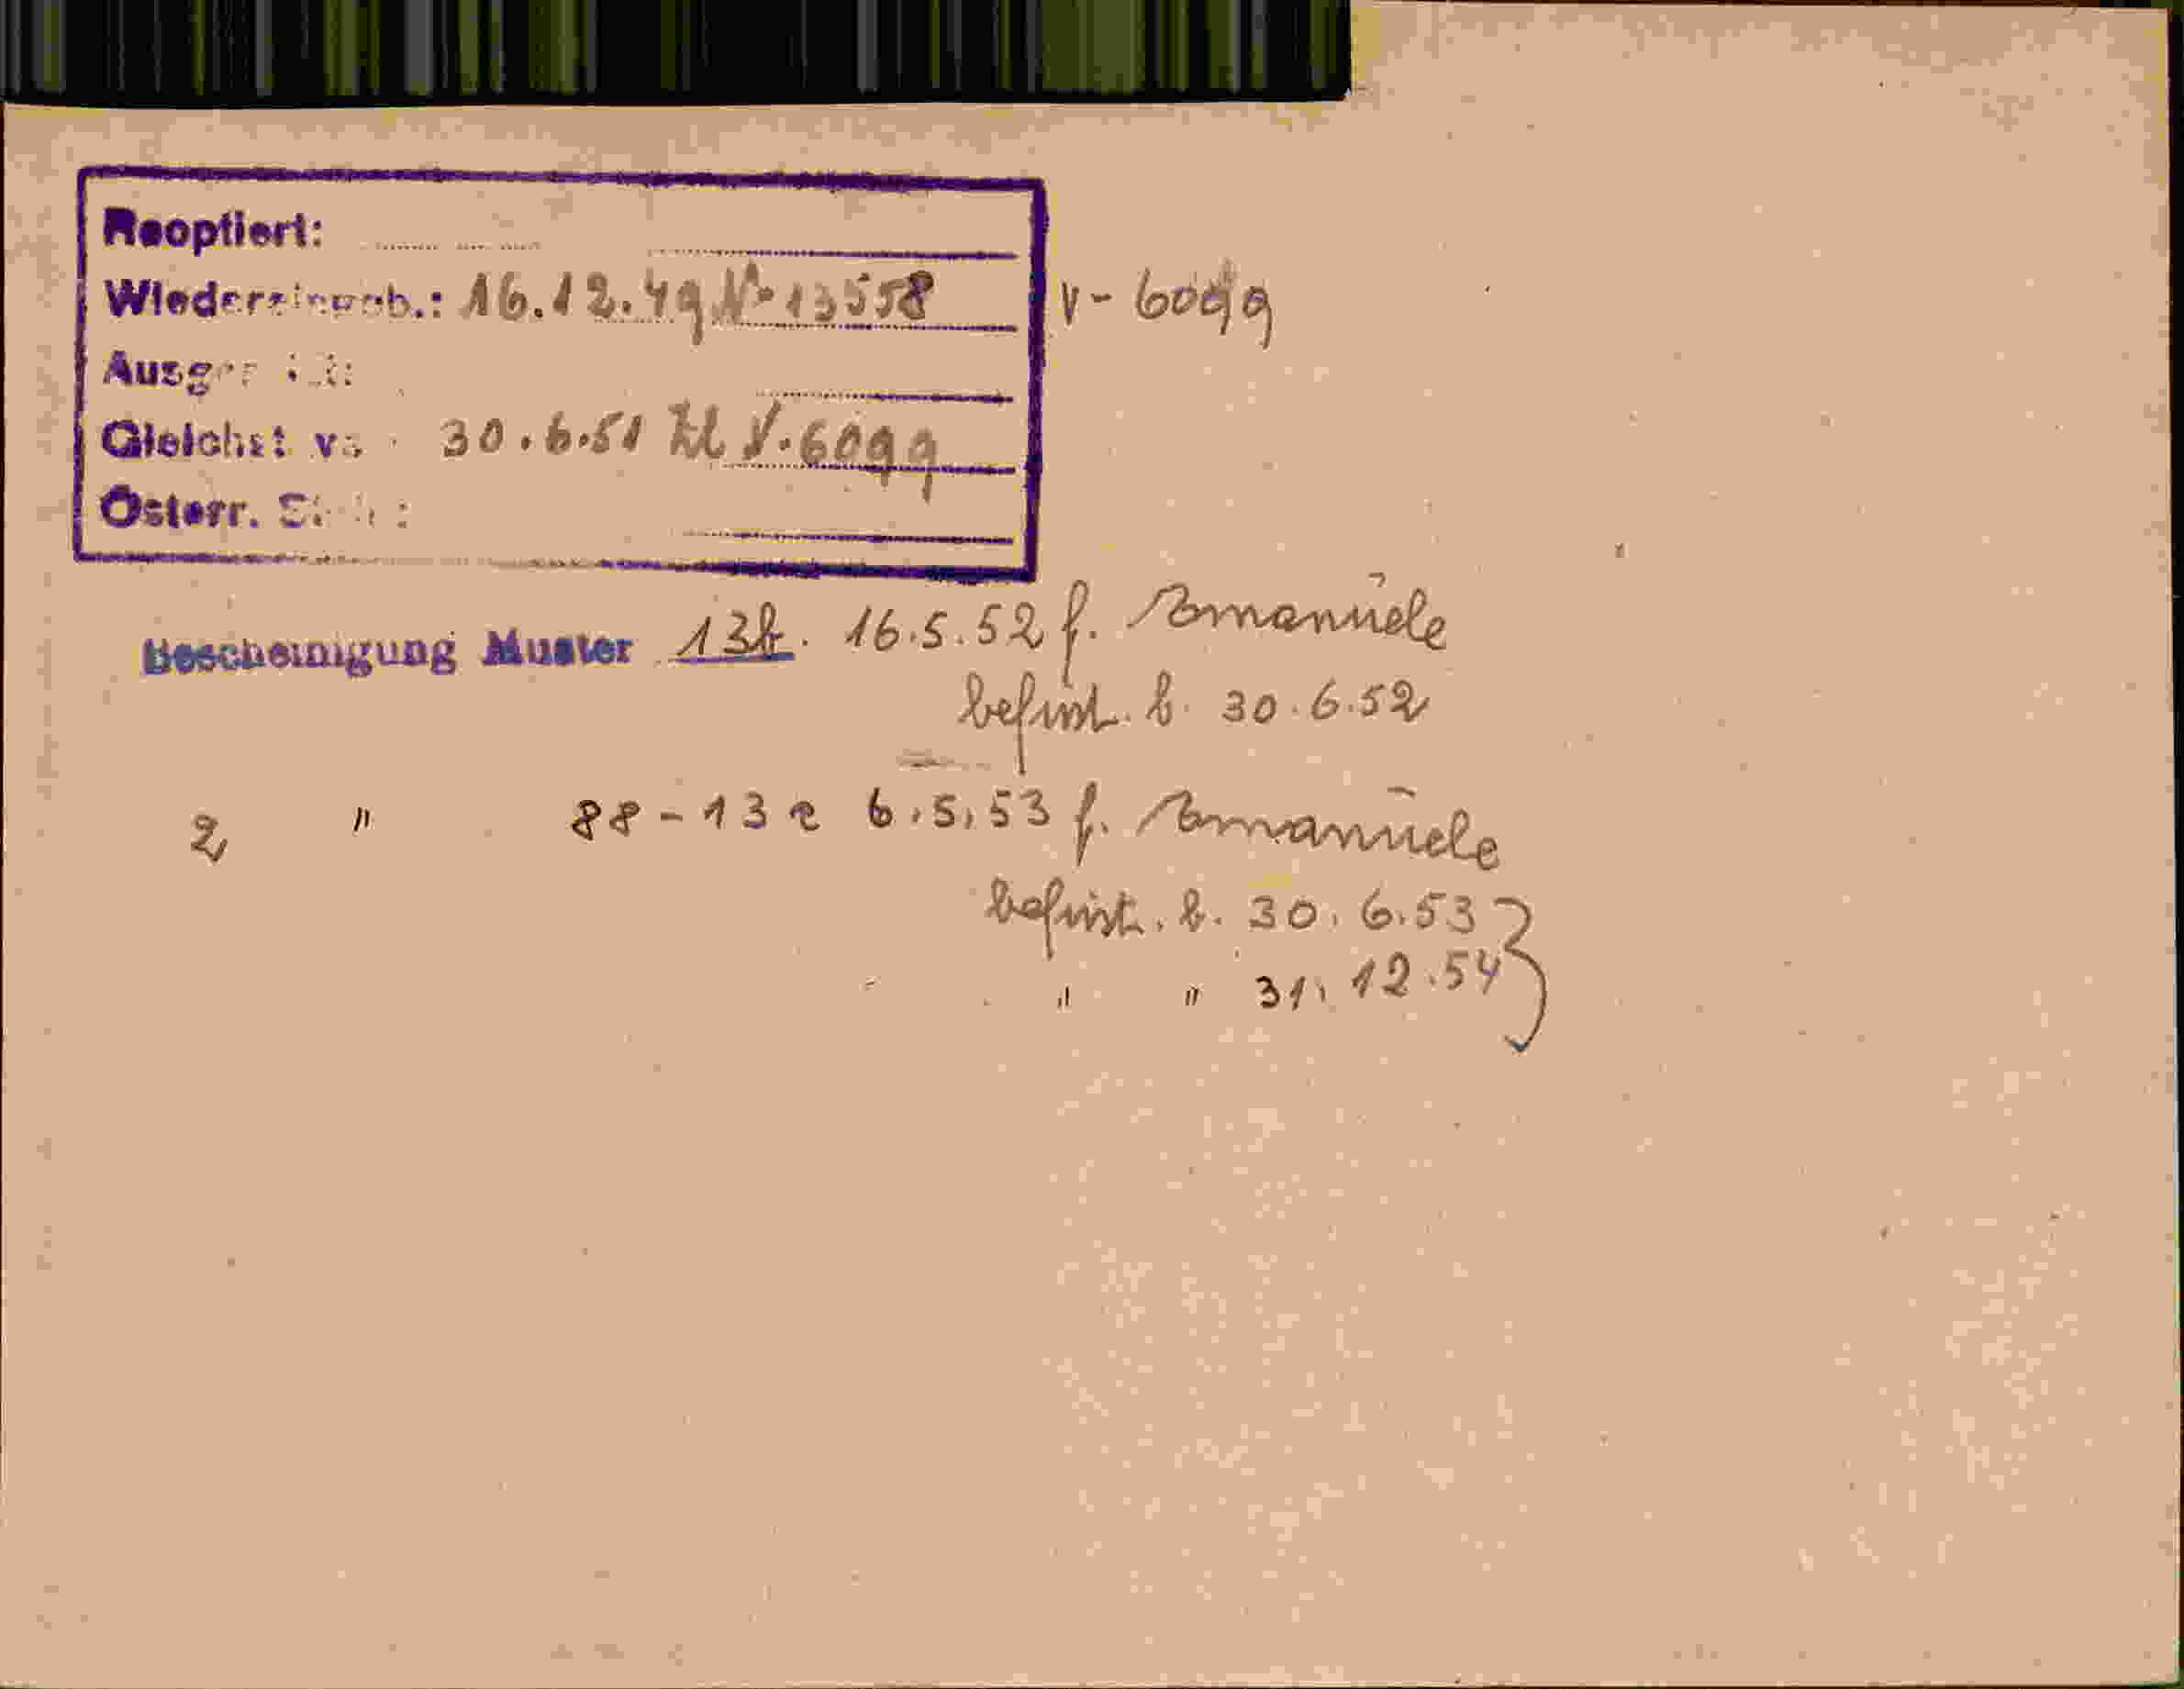 Reoptiert:
Wiedereingeb.: 16.12.49 N. 13558 V - 6099
Ausger
Gleichst 30.6.51 Zl V. 6099
Österr.
Bescheinigung Muster 13b. 16.5.52 f. Emanuele
befrist. b. 30.6.52
2 " 88-13a 6.5.53 f. Emanuele
befrist. b. 30.6.53
" " 31.12.54